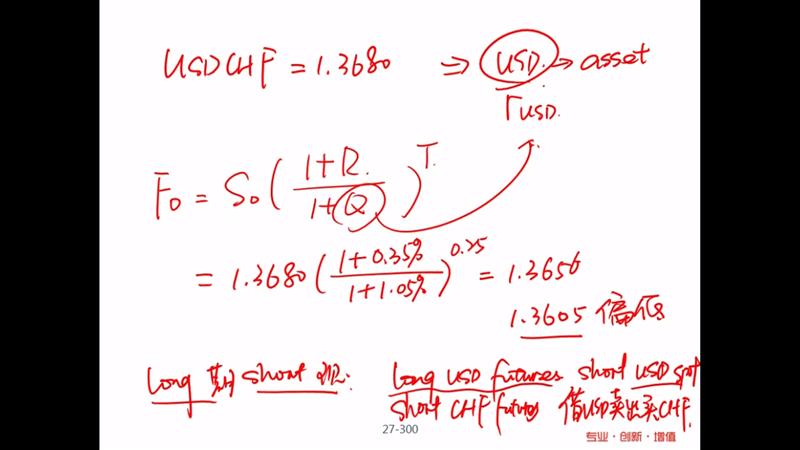 USDCHF = 1.3680 ⇒ USD. → asset
rUSD.
F0 = S0 ( (1+R) / (1+Q) )^T.
= 1.3680 ( (1+0.35%) / (1+1.05%) )^0.25 = 1.3656
1.3605 偏低
long 期 short 现: long USD futures short USD spot
short CHF futures 借USD卖出买CHF.
27-300
专业·创新·增值